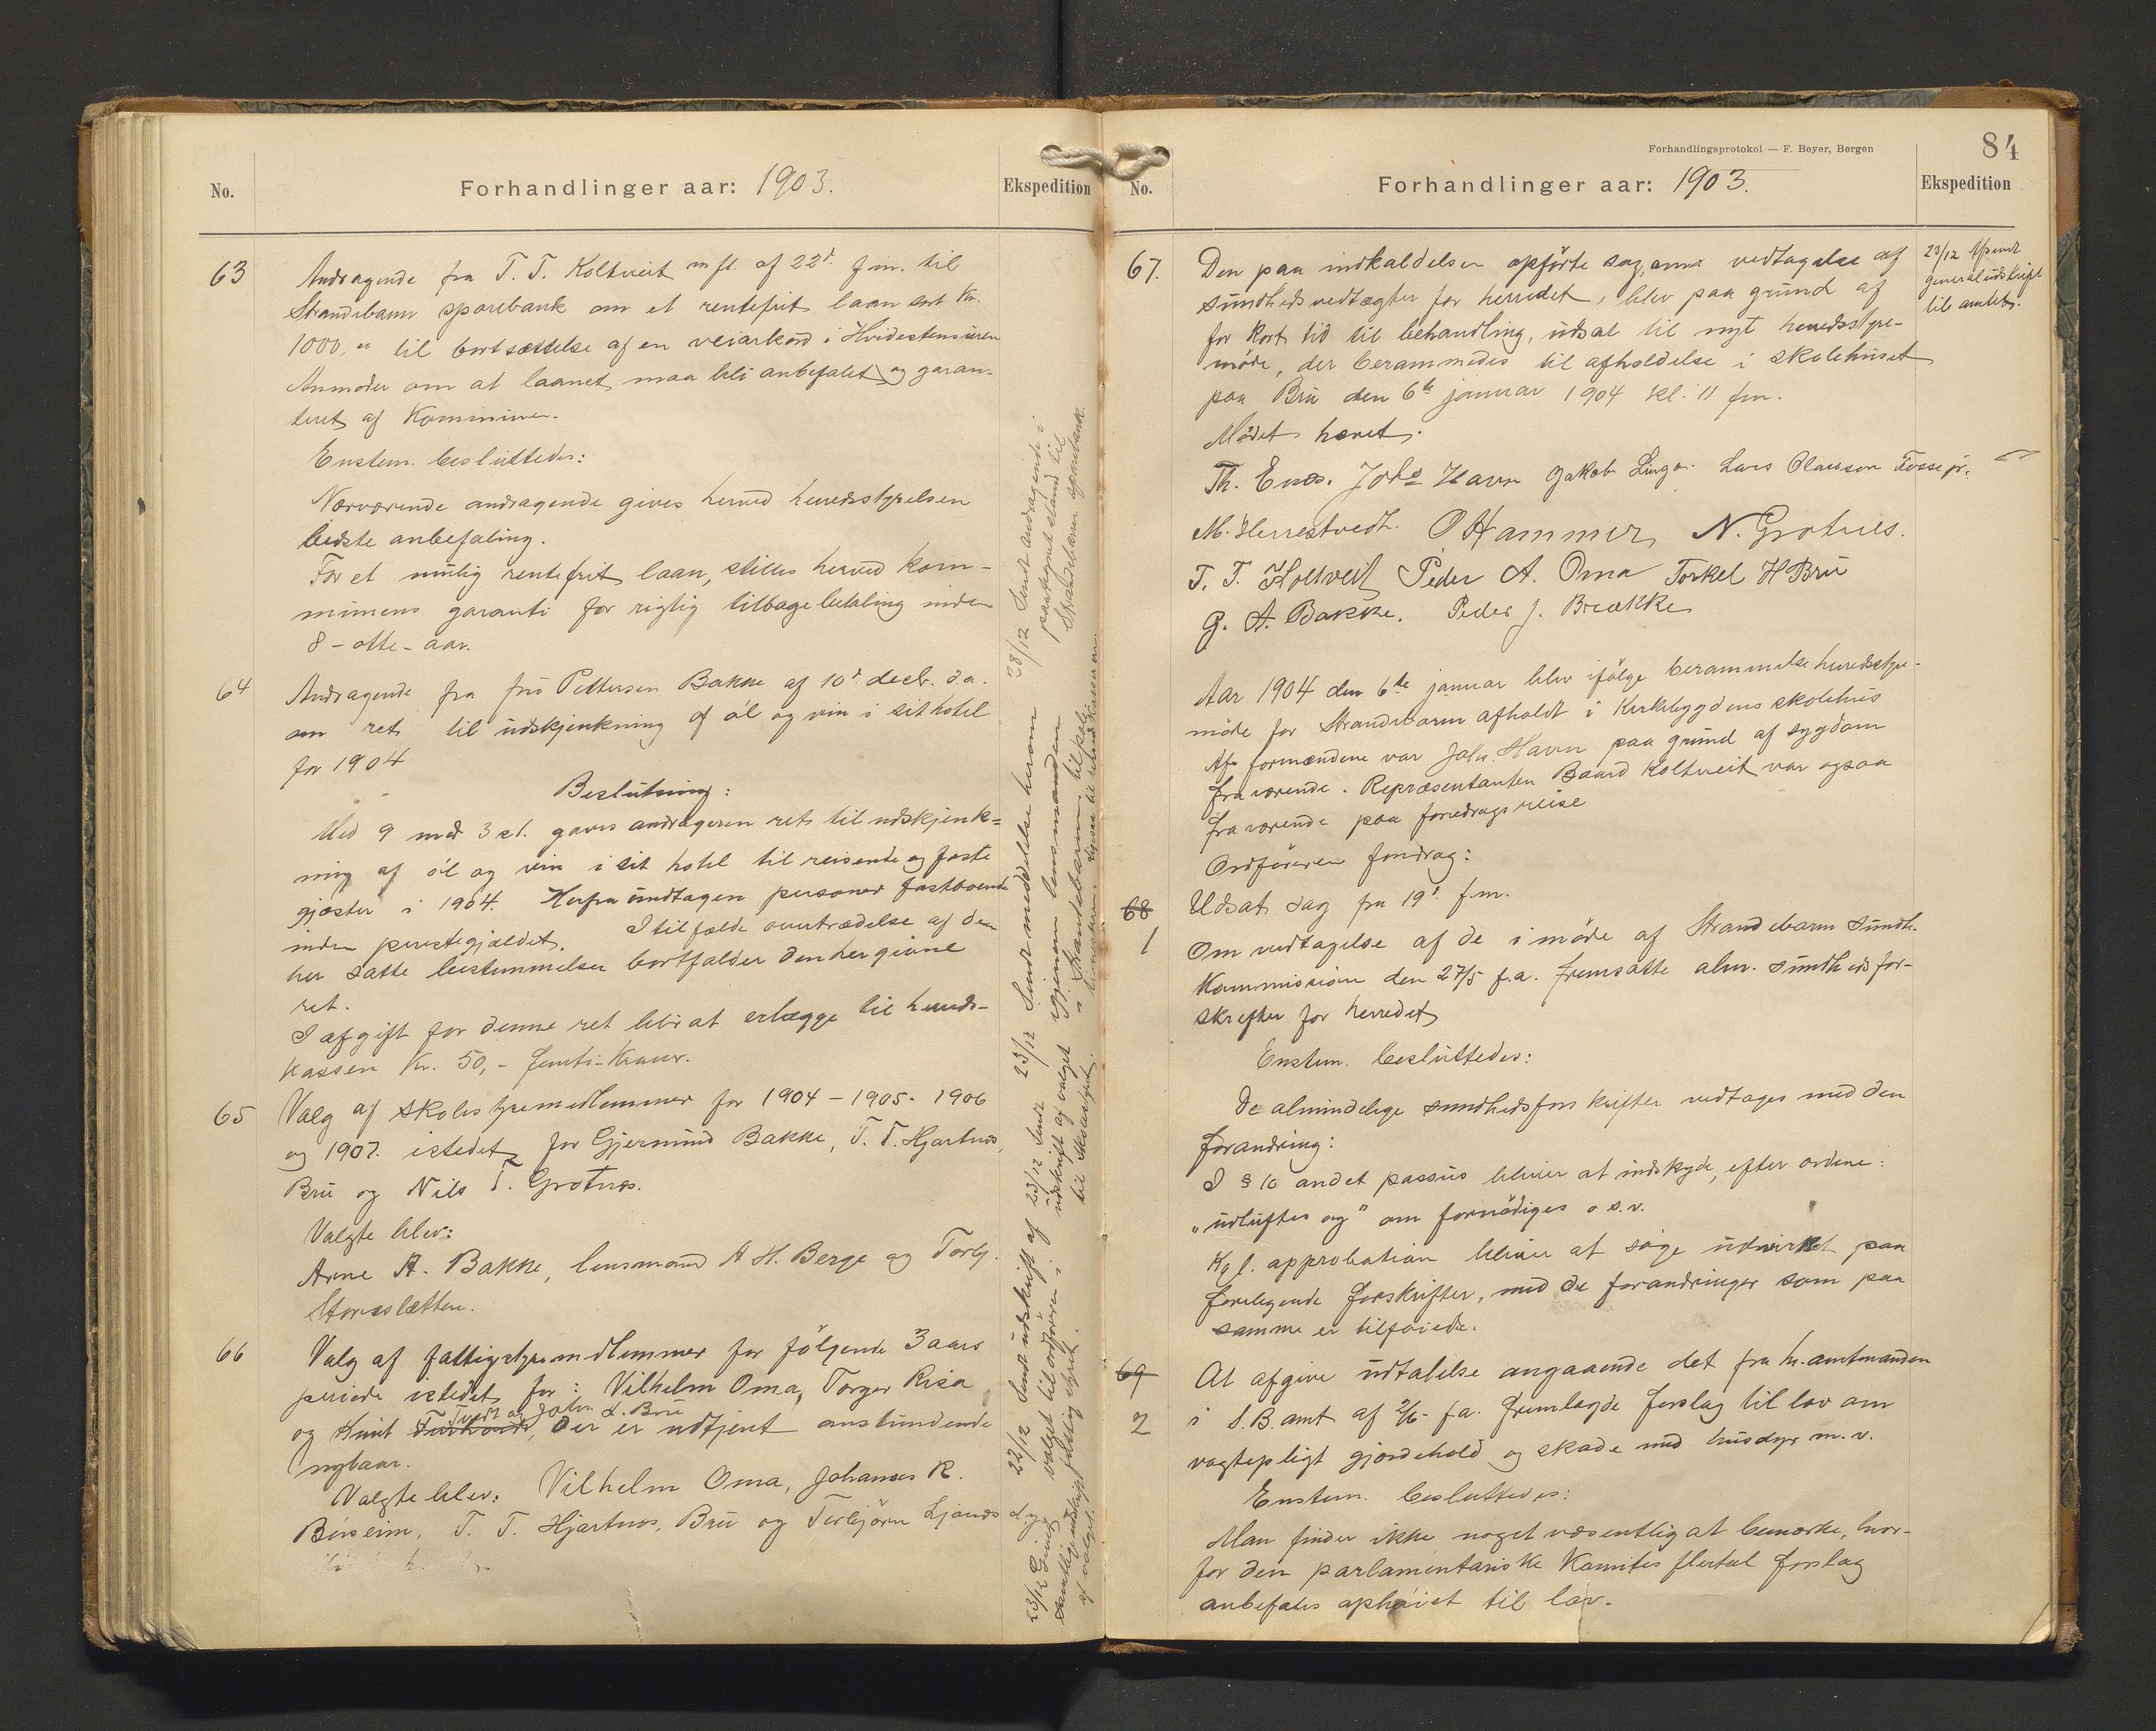 No.
Forhandlinger aar: 1903.
Ekspedition
63
Andragende fra T. T. Koltveit m fl. af 22' f.m. til
Strandebarm sparebank om et rentefrit laan stort Kr.
1000,00 til bortsættelse af en veiarkord i
Anmoder om at laanet maa bli anbefalet og garan-
teret af Kommunen.
Enstem. besluttedes:
Nærværende andragende gives herved herredsstyrelsen
bedste anbefaling.
For et mulig rentefrit laan, stilles herved kom-
munens garanti for rigtig tilbagebetaling inden
8 - otte - aar.
64
Andragende fra fru Pettersen Bakke af 10' decbr. d.a.
om ret til udskjenkning af øl og vin i sit hotel
for 1904
Beslutning:
Med 9 mod 3 st. gaves andrageren ret til udskjenk=
ning af øl og vin i sit hotel til reisende og faste
gjæster i 1904. Herfra undtagen personer fastboende
inden præstegjældet. I tilfælde overtrædelse af den
her satte bestemmelse bortfalder den her givne
ret.
I afgift for denne ret blir at erlægge til herreds-
kassen Kr. 50,- femti-Kroner.
65
Valg af skolestyremedlemmer for 1904 - 1905 - 1906
og 1907. istedet for Gjermund Bakke, T. T. Hjartnæs,
Bru og Nils T. Grotnes.
Valgte blev:
Arne A. Bakke, lensmand A H. Berge og Torbj.
Storesletten.
66
Valg af fattigstyremedlemmer for følgende 3 aars
periode istedet for: Vilhelm Oma, Torger Risa
Tvedt og Johs. L. Bru
og Knut, der er udtjent anstundende
nytaar.
Valgte blev: Vilhelm Oma, Johannes R.
Børseim, T. T. Hjartnæs, Bru og Torbjörn
28/12 Sendt andragende i
paategnet stand til
Strandebarm sparebank.
23/12 Sendt meddelelse herom
igjennem lensmanden
i Strandebarm til politi
23/12 Sendt
udskrift af valget
til Skolestyret.
22/12 Sendt udskrift af
valget til ordføreren i
fattigstyret.
23/12
af valget.
Forhandlingsprotokol — F. Beyer, Bergen
84
No.
Forhandlinger aar: 1903.
Ekspedition
67.
Den paa indkaldelsen opførte sag, om vedtagelse af
sundhedsvedtægter for herredet, blev paa grund af
for kort tid til behandling, udsat til nyt herredsstyre-
møde, der berammedes til afholdelse i skolehuset
paa Bru den 6te januar 1904 kl. 11 fm.
Mødet hævet.
23/12 Afsendt
generaludskrift
til amtet.
Th. Enes. Johs Havn Jakob Linga. Lars Olausson Fosse jr.
M. Herrestvedt. O Hammer N. Grotnes.
T. T. Koltveit Peder A. Oma Torkel H Bru
G. A. Bakke. Peder J. Brække
Aar 1904 den 6te januar blev ifølge berammelse herredsstyre-
møde for Strandebarm afholdt i Kirkebygdens skolehus
Af formændene var Johs. Havn paa grund af sygdom
fraværende. Repræsentanten Baard Koltveit var ogsaa
fraværende paa foredragsreise
Ordføreren foredrag:
68
1
Udsat sag fra 19' f.m.
Om vedtagelse af de i møde af Strandebarm Sundh.
Kommission den 27/5 f.a. fremsatte alm. sundhedsfor-
skrifter for herredet
Enstem. besluttedes:
De almindelige sundhedsforskrifter vedtages med den
forandring:
I § 10 andet passus bliver at indskyde, efter ordene:
„udluftes og" om fornødiges o s.v.
Kgl. approbation bliver at søge udvirket paa
foreliggende forskrifter, med de forandringer som paa
samme er tilføiede.
69
2
At afgive udtalelse angaaende det fra hr. amtmanden
i S. B. amt af 2/6- f.a. fremlagde forslag til lov om
vogtepligt gjærdehold og skade med husdyr m. v.
Enstem. besluttedes:
Man finder ikke noget væsentlig at bemærke, hvor-
for den parlamentariske Komites flertal forslag
anbefales ophøiet til lov.